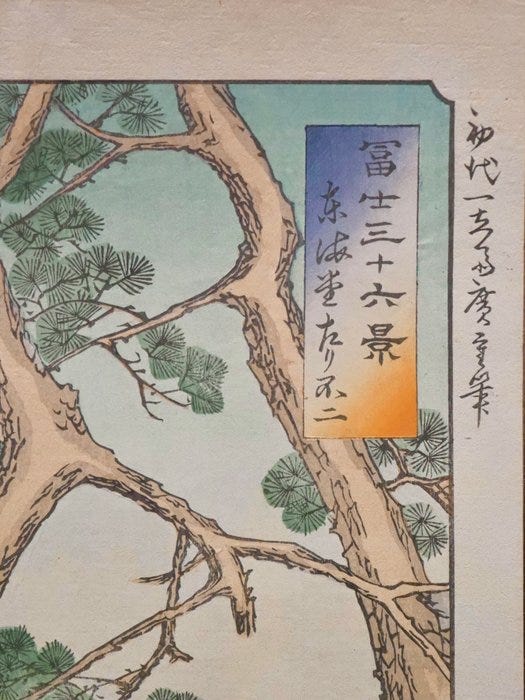 初代一立斎廣重筆
冨士三十六景
東海堂左り不二